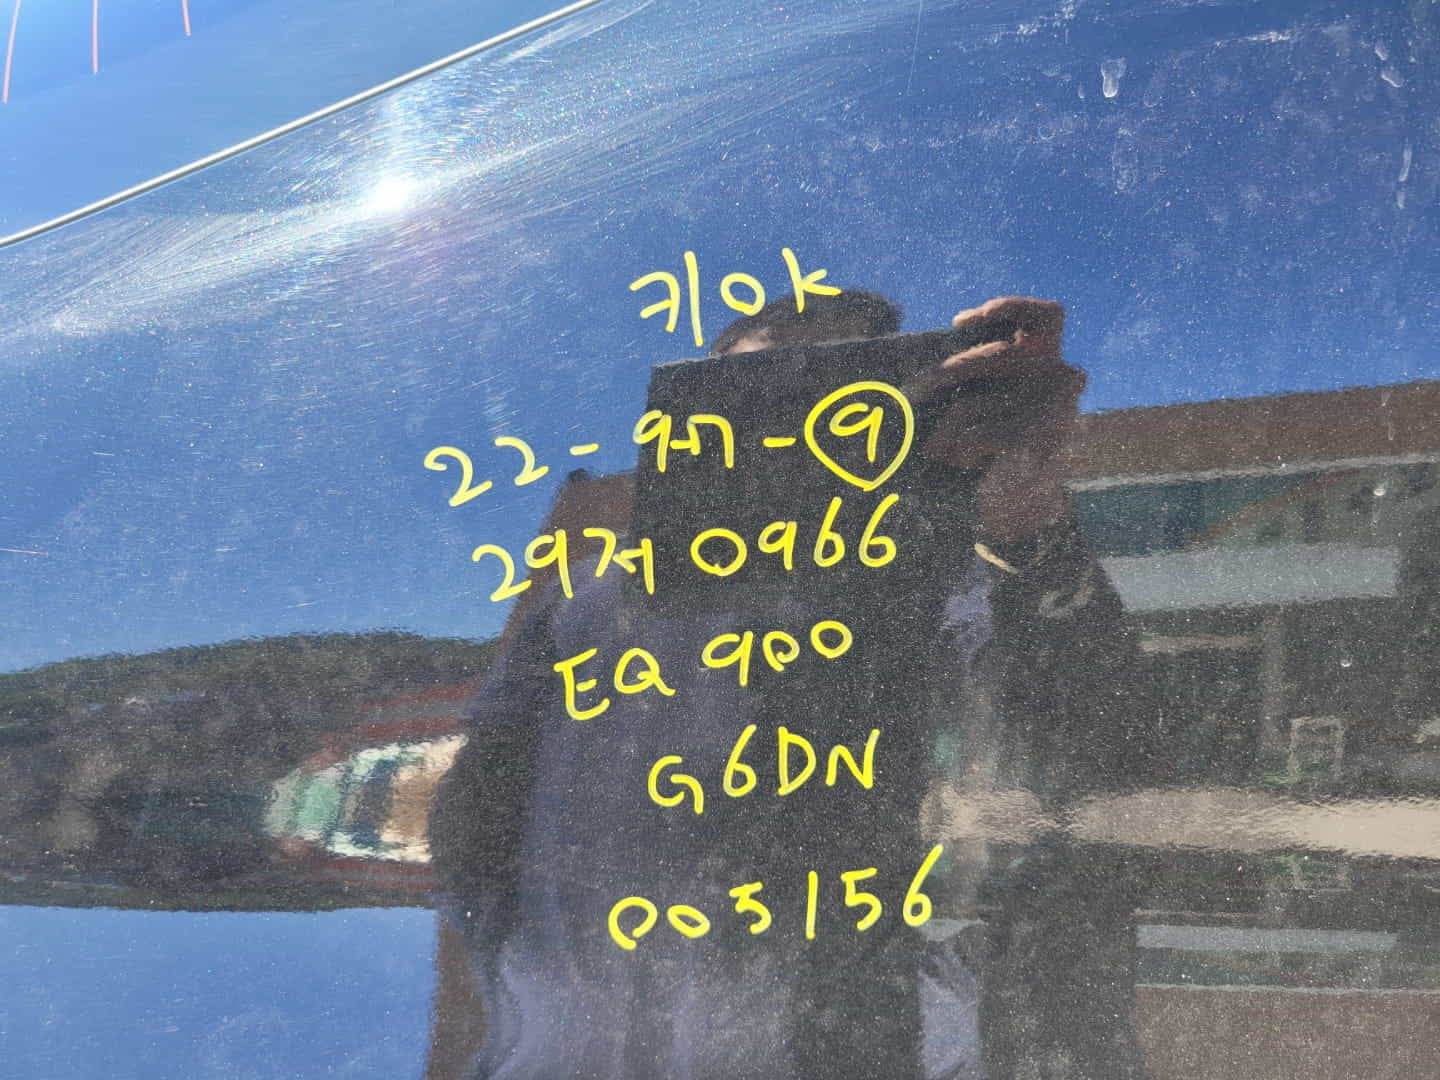 키OK
22-957-⑨
29저0966
EQ 900
G6DN
005156